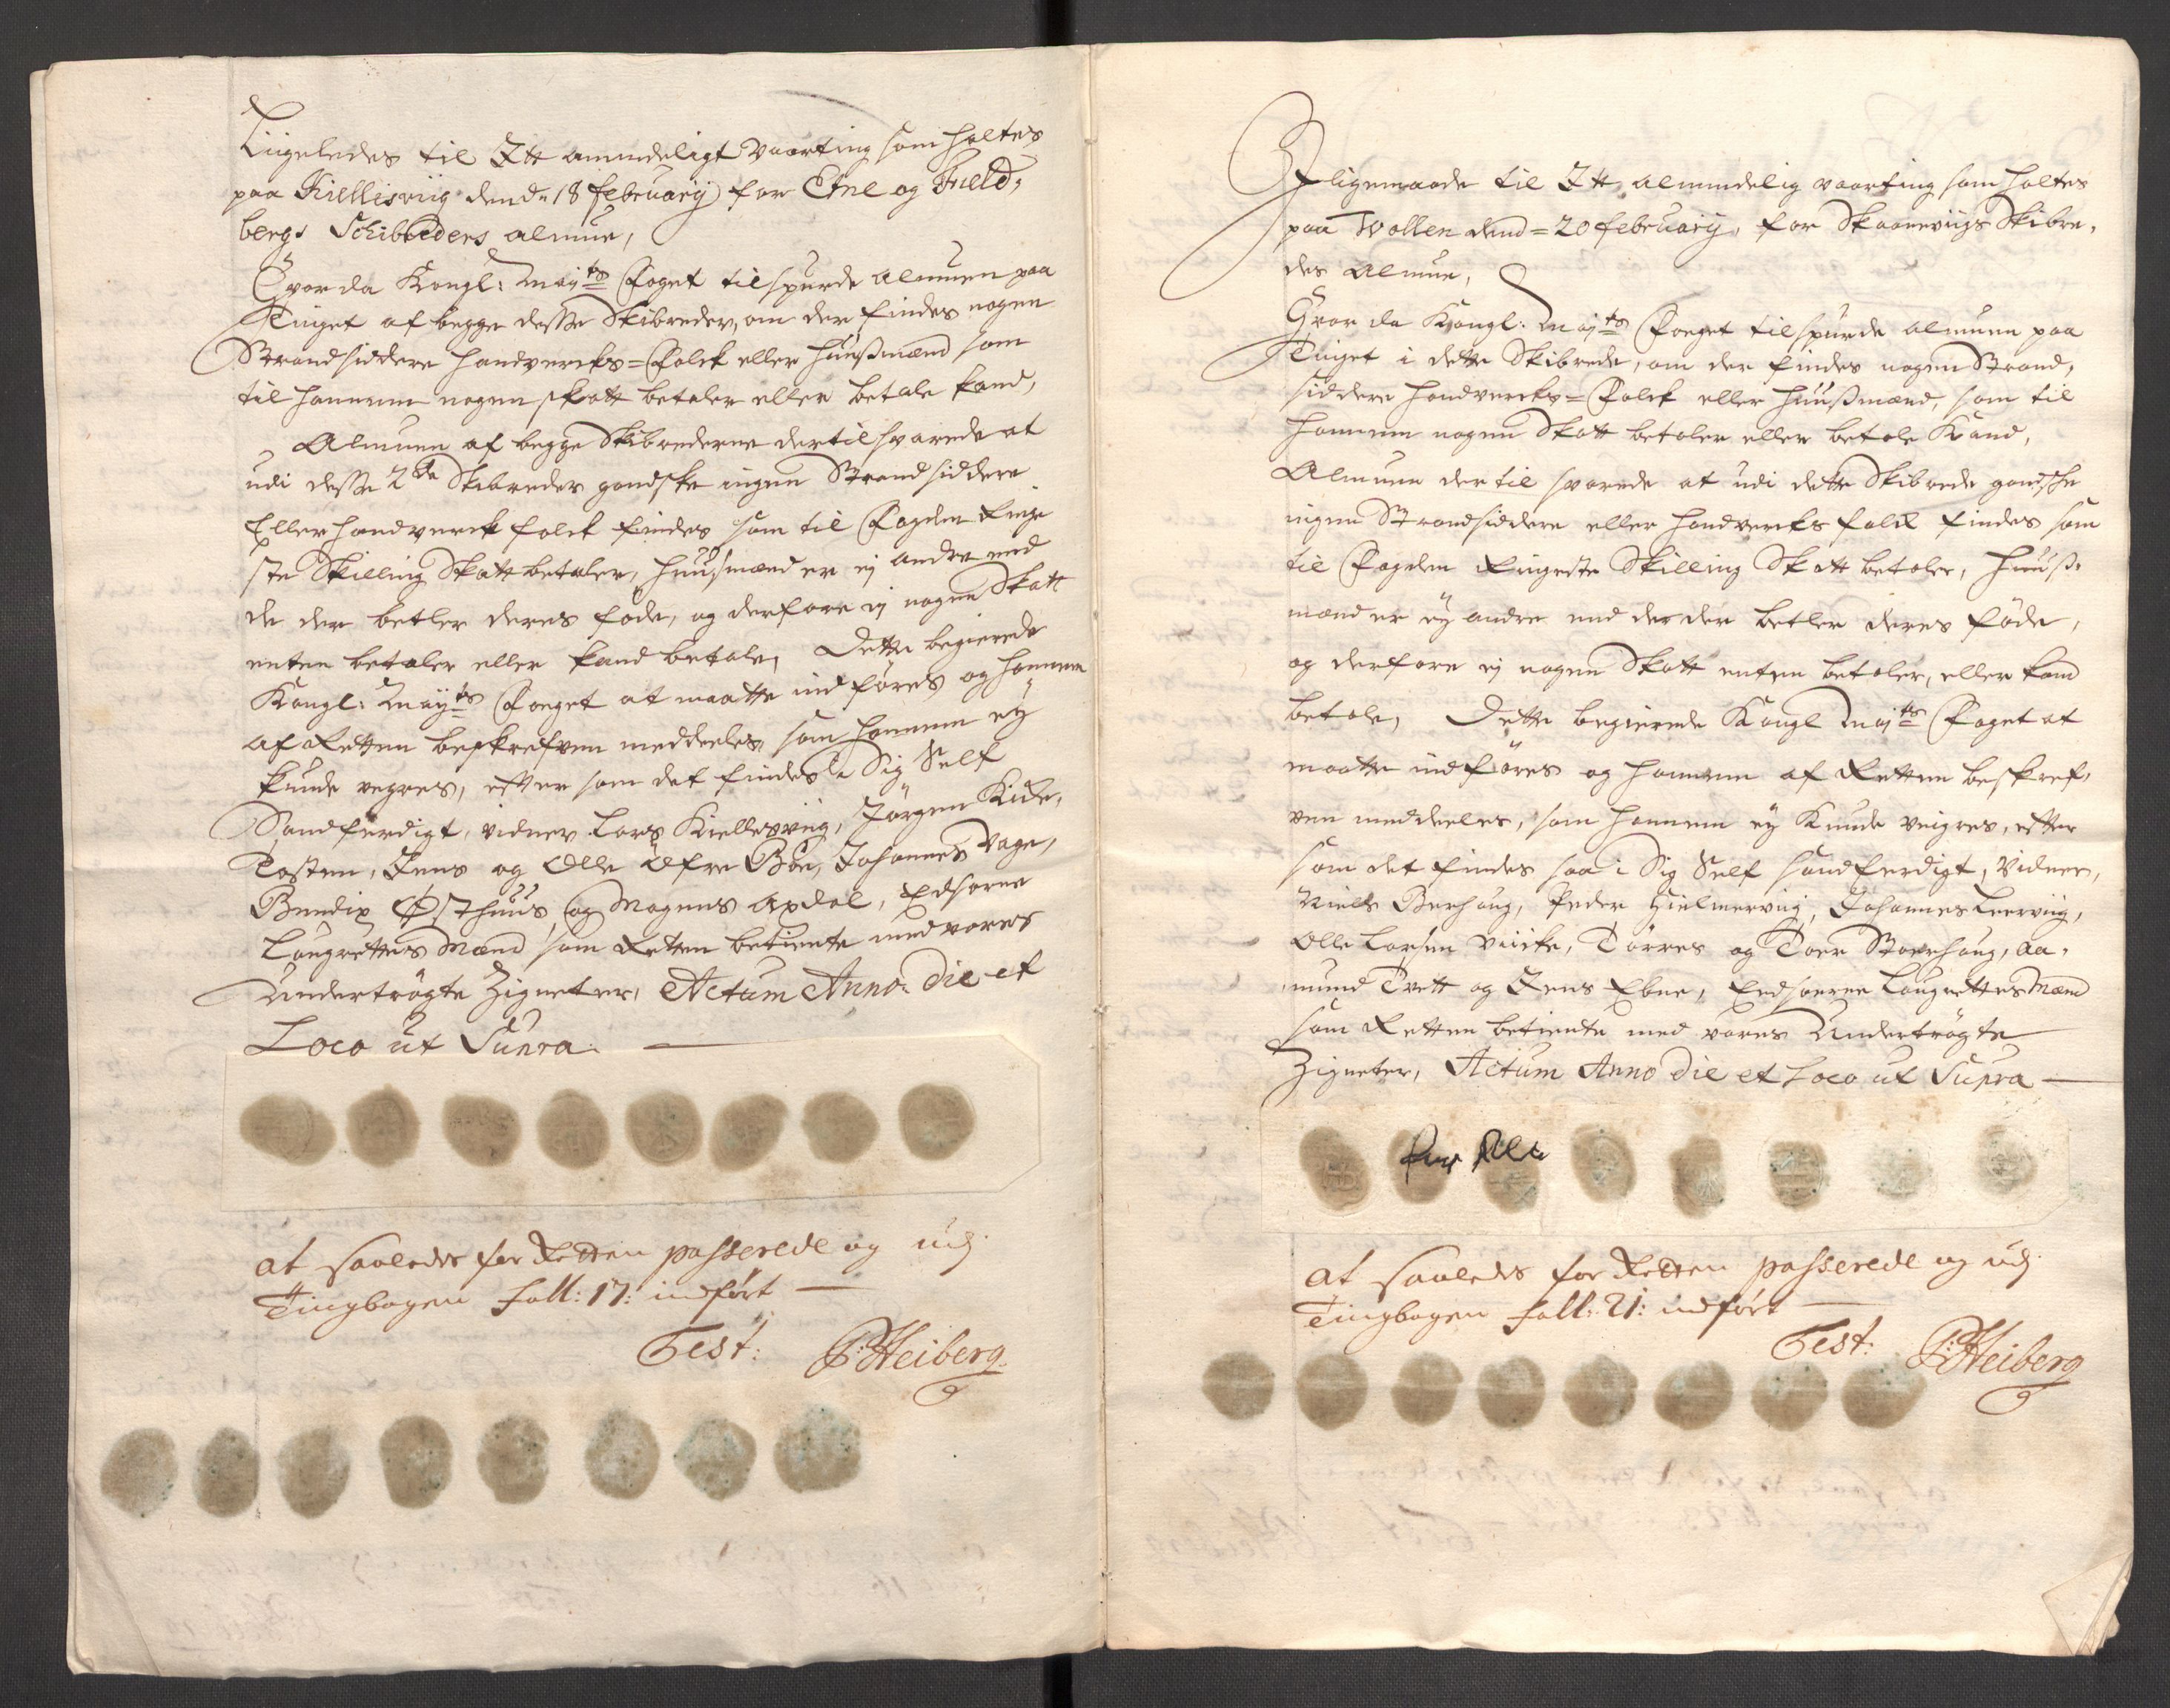 Liigeledes til Itt ammdeligt Vaarting som holtes
paa Kiellesviig dend= 18 february for Etne og Field,
bergs Schibreders almue,
Hvor da Kongl: May.ts Foget tilspurde almuen paa
Tinget af begge desse Skibreder, om der findes nogen
Strandsiddere handvercks=Folck eller huußmænd som
til hannem nogen skatt betaler eller betale kand,
Almuen af begge Skibrederne dertil svarede at
udi desse 2de Skibreder gandske ingen Strandsiddere
Eller handverck folck findes som til Fogden Ringe
ste Skilling Skatt betaler, huusmænd er ej andre end
de der betler deres føde, og derfore ej nogen Skatt
enten betaler eller kand betale, Dette begierede
Kongl: Mayts Foeget at maatte indføres og hannem
af Retten beskrefven meddeeles, som hannem ey
kunde vegres, efter som det findes i Sig Self
Sandferdigt, vidner Lars Kiellesviig, Jørgen Kide,
Tosten, Jens og Olle Øfre Bøe, Johannes Vage,
Bendix Østhuus og Mogens Axdal, Edsorne
Laugrettes Mænd som Retten betiente med vores
Undertrøgte Zigneter, Actum Anno: Die et
Loco ut Supra.
at saaledes for Retten passerede og udj
Tingbogen foll: 17: indført
Test: P: Heiberg
Ifligemaade til Itt almindelig vaarting som holtes
paa Wollen dend= 20 february, for Skaaneviigs Skibre,
des Almue,
Hvor da Kongl: Majts Foeget tilspurde almuen paa
Tinget i dette Skibrede, om der findes nogen Strand,
siddere handvercks=Folck eller huußmænd, som til
hannem nogen Skatt betaler eller betale Kand,
Almuen der til svarede at udi dette Skibrede gandsche
ingen Strandsiddere eller handvercks folck findes som
til Fogden Ringeste Skilling Skatt betaler, huuß,
mænd er ey andre end de der betler deres føde,
og derfore ej nogen Skatt enten betaler, eller kand
betale, Dette begierede Kongl Majts Foget at
maatte indføres og hannem af Retten beskref,
ven meddeeles, som hannem ey Kunde veigres, efter
som det findes saa i Sig Self sandferdigt, Vidner,
Niels Berhaug, Peder Hielmerviig, Johannes Leerviig,
Olle Larsen Viicke, Tørres og Toer Stoerhaug, Aa,
mund Tvett og Jens Ebne, Eedsorne Laugrettes Mænd
som Retten betiente med vores Undertrøgte
Zigneter, Actum Anno Die et Loco ut Supra
at saaledes for Retten passerede og udj
Tingbogen foll: 21: indført
Test: P: Heiberg